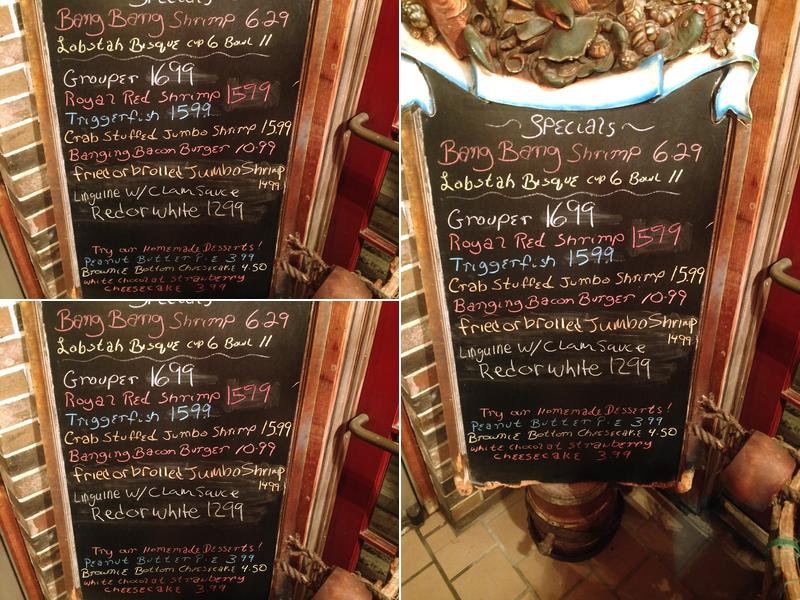 Specials
Bang Bang Shrimp 6.29
Lobstah Bisque cup 6 Bowl 11
Grouper 1699
Royal Red Shrimp 1599
Triggerfish 1599
Crab Stuffed Jumbo Shrimp 15.99
Banging Bacon Burger 10.99
fried or broiled Jumbo Shrimp
1499
Linguine W/ Clam Sauce
Red or white 1299
Try our Homemade Desserts!
Peanut Butter Pie 3.99
Brownie Bottom Cheesecake 4.50
white chocolat strawberry
cheesecake 3.99
Specials
Bang Bang Shrimp 6.29
Lobstah Bisque cup 6 Bowl 11
Grouper 1699
Royal Red Shrimp 1599
Triggerfish 1599
Crab Stuffed Jumbo Shrimp 15.99
Banging Bacon Burger 10.99
fried or broiled Jumbo Shrimp
1499
Linguine W/ Clam Sauce
Red or white 1299
Try our Homemade Desserts!
Peanut Butter Pie 3.99
Brownie Bottom Cheesecake 4.50
white chocolat strawberry
cheesecake 3.99
Specials
Bang Bang Shrimp 6.29
Lobstah Bisque cup 6 Bowl 11
Grouper 1699
Royal Red Shrimp 1599
Triggerfish 1599
Crab Stuffed Jumbo Shrimp 15.99
Banging Bacon Burger 10.99
fried or broiled Jumbo Shrimp
1499
Linguine W/ Clam Sauce
Red or white 1299
Try our Homemade Desserts!
Peanut Butter Pie 3.99
Brownie Bottom Cheesecake 4.50
white chocolat strawberry
cheesecake 3.99